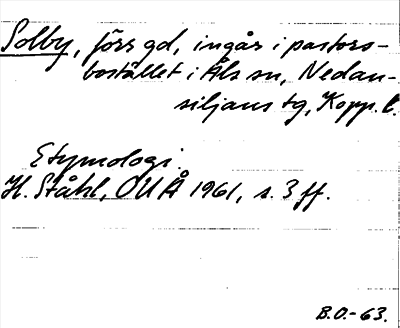 Solby, förr gd, ingår i pastors-
bostället i Åls sn, Nedan-
siljans tg, Kopp. l.
Etymologi.
H. Ståhl, OUÅ 1961, s. 3 ff.
B.O.-63.